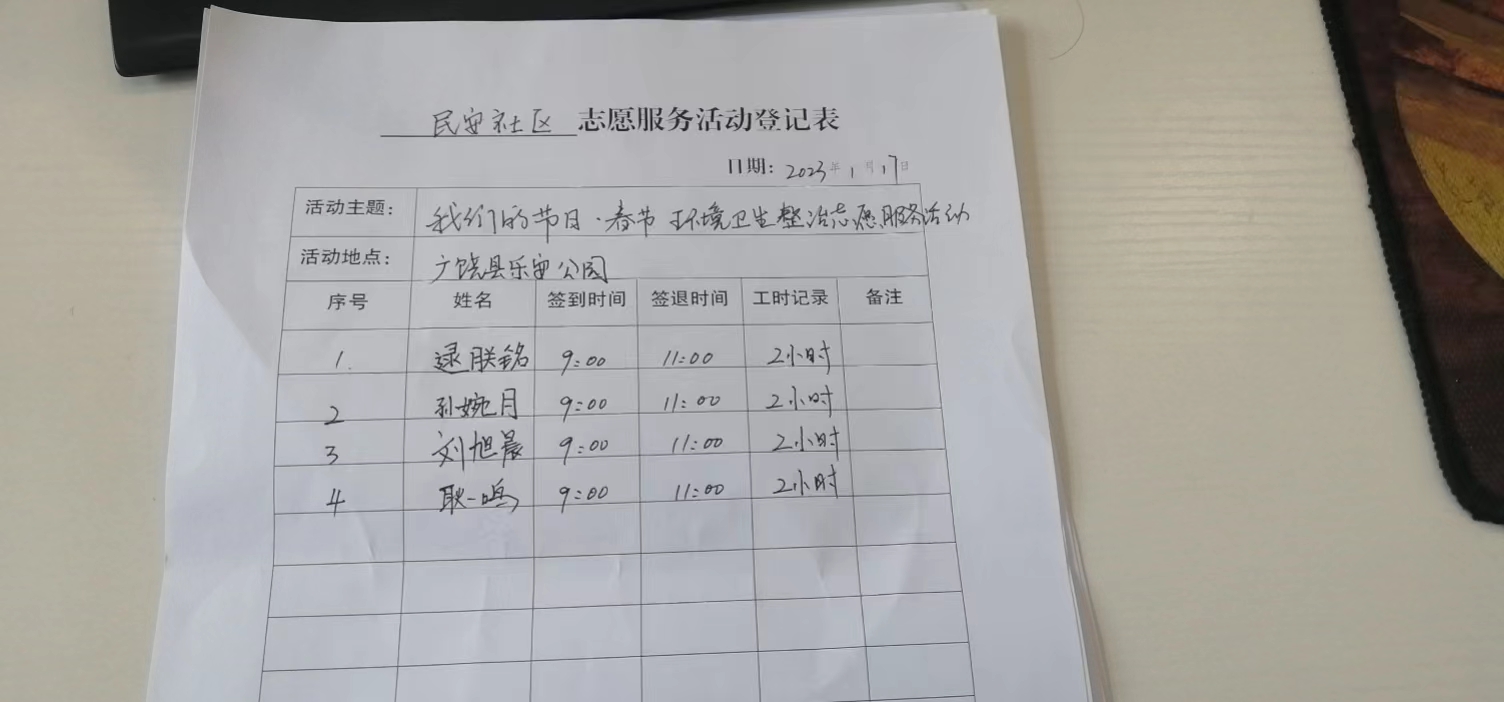 民安社区 志愿服务活动登记表
日期: 2023年1月17日
活动主题: 我们的节日·春节 环境卫生整治志愿服务活动
活动地点: 广饶县乐安公园
序号 姓名 签到时间 签退时间 工时记录 备注
1. 逯朕铭 9:00 11:00 2小时
2 孙婉月 9:00 11:00 2小时
3 刘旭晨 9:00 11:00 2小时
4 耿一鸣 9:00 11:00 2小时